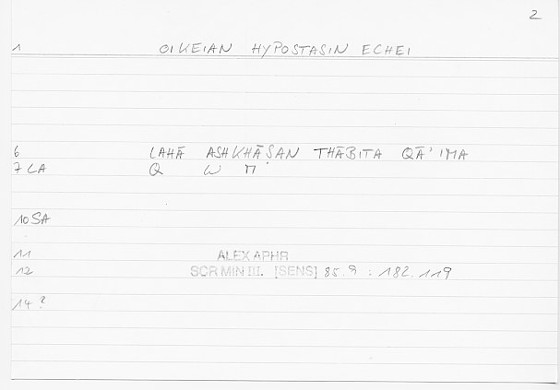 2
1 OIKEIAN HYPOSTASIN ECHEI
6 LAHĀ ASHKHĀṢAN THĀBITA QĀ'IMA
7 LA Q W M
10 SA
11 ALEX APHR
12 SCR MIN III. [SENS] 85.9 : 182.119
14 ?